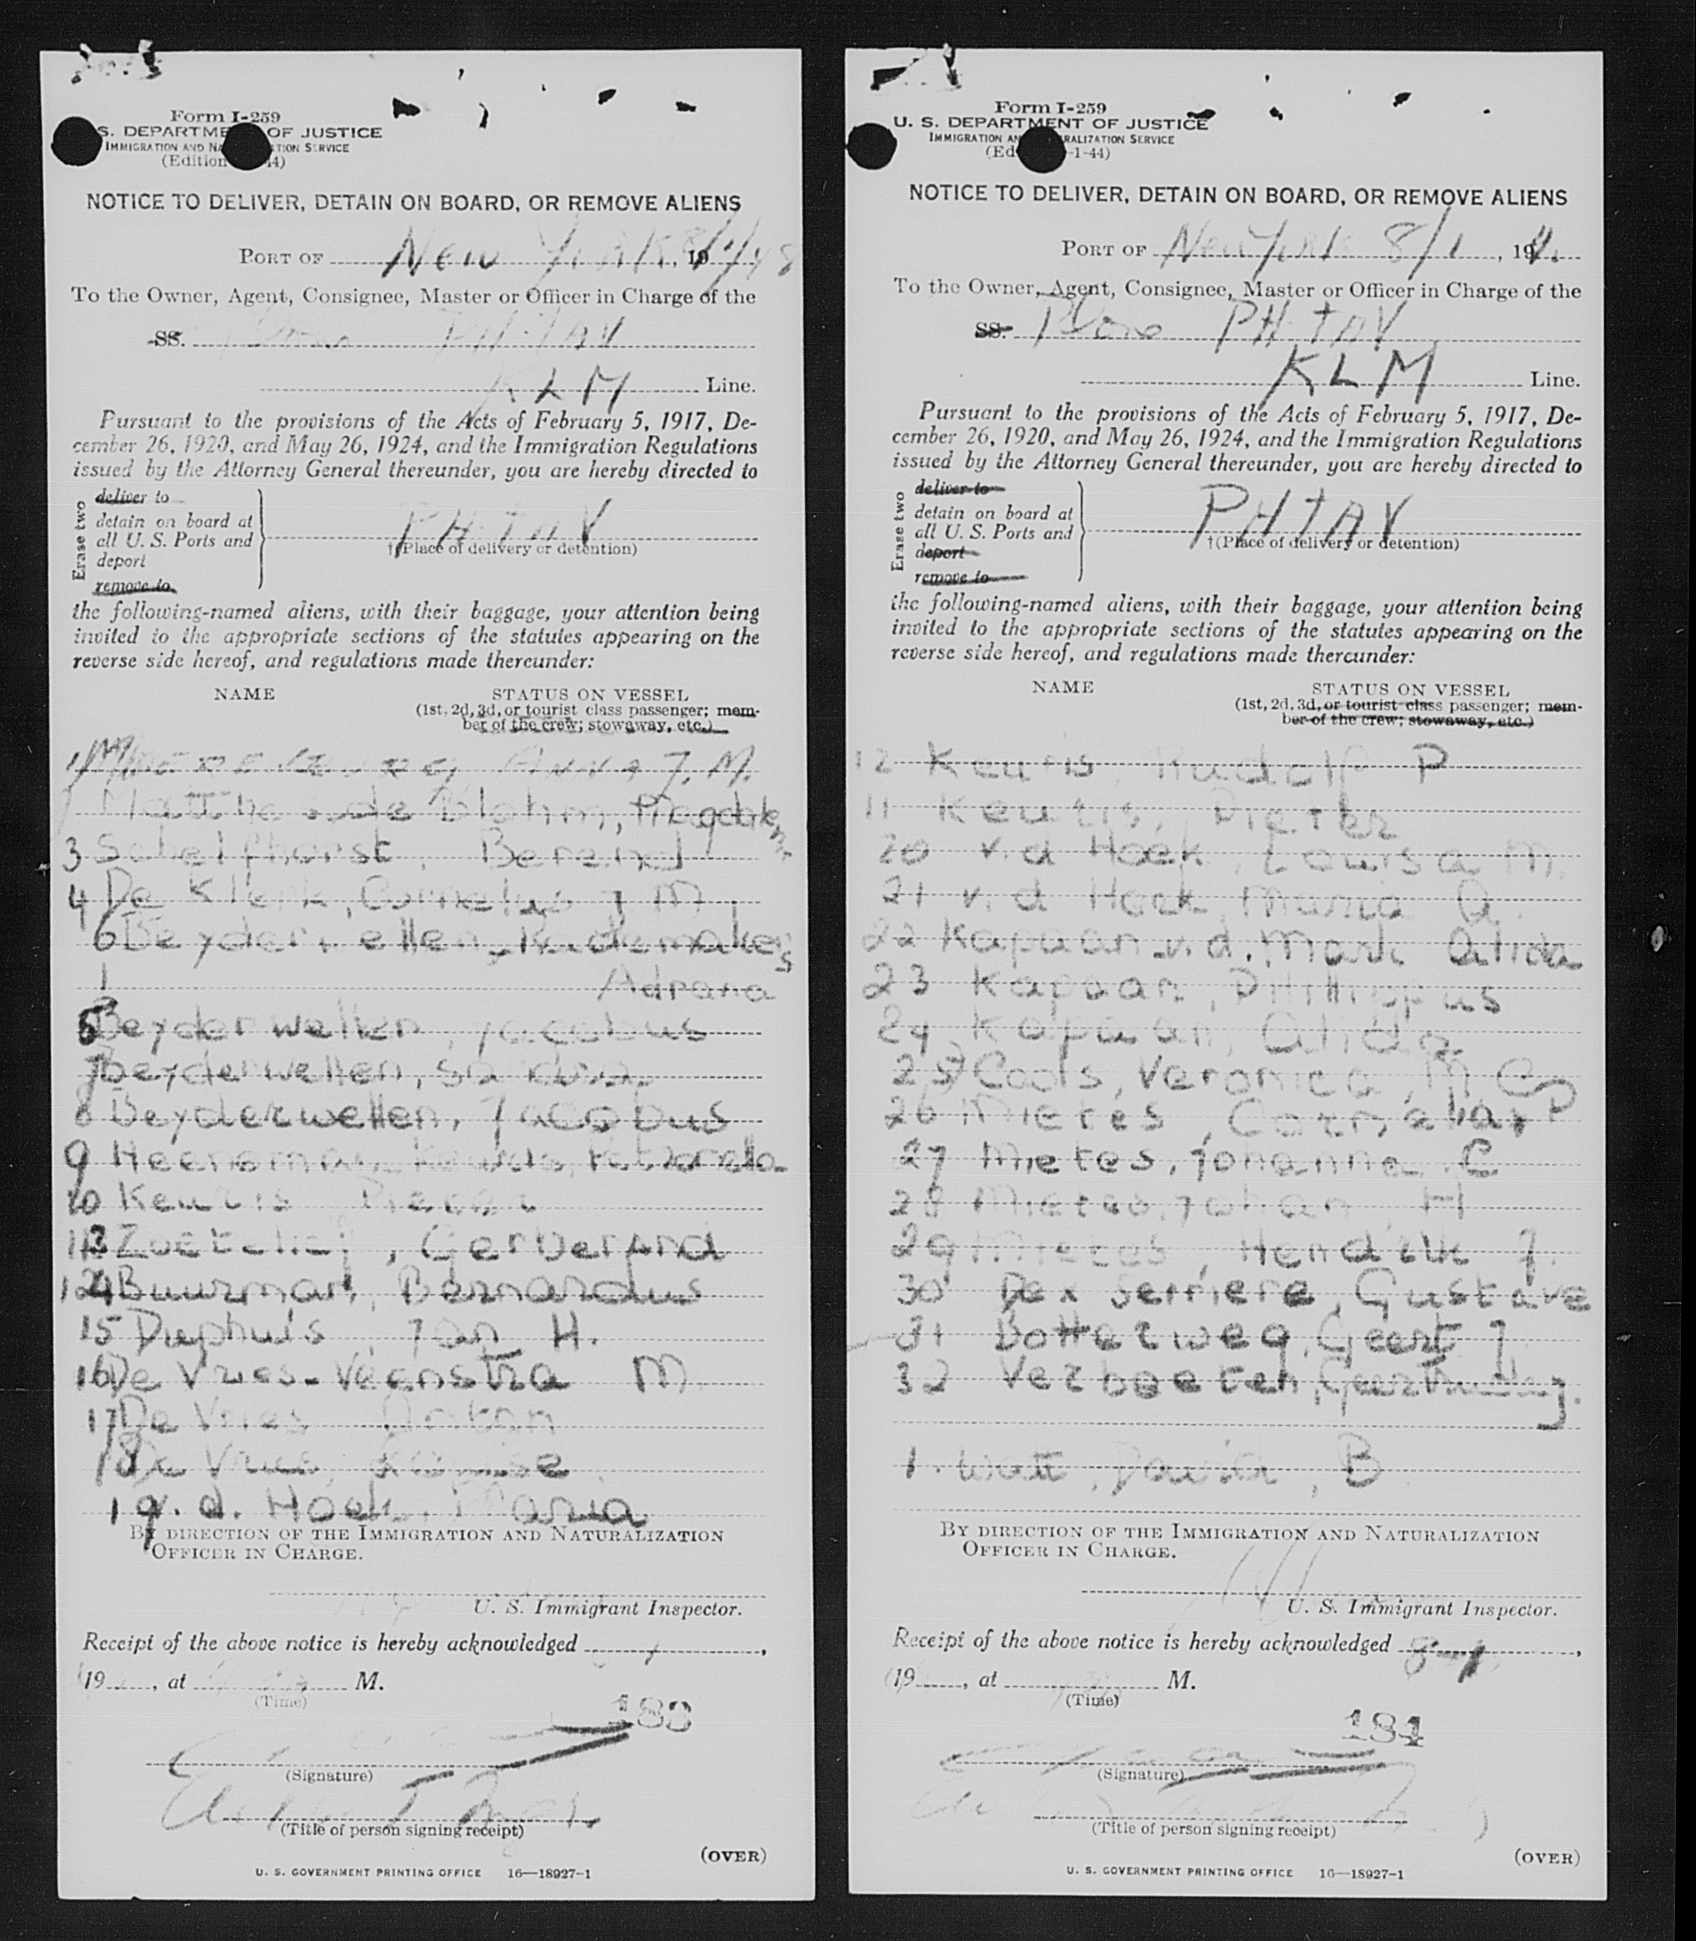 Form I-259
S. DEPARTME OF JUSTICE
IMMIGRATION AND NA TION SERVICE
(Edition 44)
NOTICE TO DELIVER, DETAIN ON BOARD, OR REMOVE ALIENS
PORT OF New York 8/1/48, 19
To the Owner, Agent, Consignee, Master or Officer in Charge of the
SS. Plane PH-TAV
KLM Line.
Pursuant to the provisions of the Acts of February 5, 1917, De-
cember 26, 1920, and May 26, 1924, and the Immigration Regulations
issued by the Attorney General thereunder, you are hereby directed to
Erase two
deliver to
detain on board at
all U. S. Ports and
deport
remove to
PHTAV
†(Place of delivery or detention)
the following-named aliens, with their baggage, your attention being
invited to the appropriate sections of the statutes appearing on the
reverse side hereof, and regulations made thereunder:
NAME STATUS ON VESSEL
(1st, 2d, 3d, or tourist class passenger; mem-
ber of the crew; stowaway, etc.)
Anna J. M.
de Blohm, Magdalena
3 Schelfhorst, Berend
4 De Klerk, Cornelus J M
6 Beyderwellen-Rademakers
Adrana
5 Beyderwellen, Jacobus
7 Beyderwellen,
8 Beyderwellen, Jacobus
9
10 Keuris Pieter
13 Zoetelief, Gerberand
14 Buurman, Bernardus
15 Diephuis, Jan H.
16 De Vries-Veenstra M
17 De Vries Anton
18 De Vries,
19 v. d. Hoek, Maria
BY DIRECTION OF THE IMMIGRATION AND NATURALIZATION
OFFICER IN CHARGE.
U. S. Immigrant Inspector.
Receipt of the above notice is hereby acknowledged
19, at M.
(Time)
183
(Signature)
(Title of person signing receipt)
(OVER)
U. S. GOVERNMENT PRINTING OFFICE 16—18927-1
Form I-259
U. S. DEPARTMENT OF JUSTICE
IMMIGRATION AN RALIZATION SERVICE
(Ed -1-44)
NOTICE TO DELIVER, DETAIN ON BOARD, OR REMOVE ALIENS
PORT OF New York 8/1, 19
To the Owner, Agent, Consignee, Master or Officer in Charge of the
SS. Plane PH-TAV
KLM Line.
Pursuant to the provisions of the Acts of February 5, 1917, De-
cember 26, 1920, and May 26, 1924, and the Immigration Regulations
issued by the Attorney General thereunder, you are hereby directed to
Erase two
deliver to
detain on board at
all U. S. Ports and
deport
remove to
PHTAV
†(Place of delivery or detention)
the following-named aliens, with their baggage, your attention being
invited to the appropriate sections of the statutes appearing on the
reverse side hereof, and regulations made thereunder:
NAME STATUS ON VESSEL
(1st, 2d, 3d, or tourist class passenger; mem-
ber of the crew; stowaway, etc.)
12 Keuris, Rudolf P
11 Keuris, Pieter
20 v.d Hoek, Louisa M.
21 v. d Hoek, Maria A.
22 Kapaan-v.d. Mark Alida
23 Kapaan, Philippus
24 Kapaan, Alida
25 Cools, Veronica, M C
26 Mietes, Cornelia P
27 Mietes, Johanna C
28 Mietes, Johan H
29 Mietes, Hendrik J.
30 De Serriere, Gustave
31 Botterweg, Geert J
32 Verboeten, Geertruida J.
1. Watt, David, B
BY DIRECTION OF THE IMMIGRATION AND NATURALIZATION
OFFICER IN CHARGE.
U. S. Immigrant Inspector.
Receipt of the above notice is hereby acknowledged 8-1,
19, at M.
(Time)
184
(Signature)
(Title of person signing receipt)
(OVER)
U. S. GOVERNMENT PRINTING OFFICE 16—18927-1